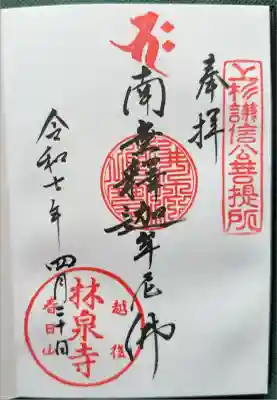 上杉謙信公菩提所
奉拝
南無釋迦牟尼佛
令和七年
四月二十日
越後
春日山
林泉寺